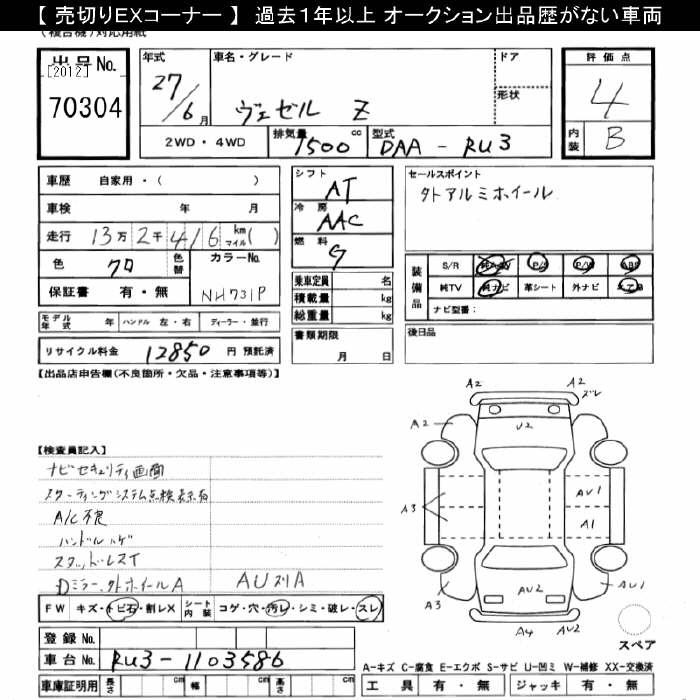 【 売切りEXコーナー 】 過去1年以上 オークション出品歴がない車両
(複合機)対応用紙
出品No.
[2012]
70304
年式
27/6月
車名・グレード
ヴェゼル Z
ドア
形状
評価点
4
内装
B
2WD・4WD
排気量
1500cc
型式
DAA-RU3
車歴 自家用・( )
車検 年 月
走行 13万2千416 km マイル( )
色 クロ
色替
カラーNo.
NH731P
保証書 有・無
シフト
AT
冷房
AAC
燃料
G
乗車定員 名
積載量 kg
総重量 kg
書類期限
月 日
セールスポイント
外アルミホイール
装備品
S/R 純AAV P/S P/W ABS
純TV 純ナビ 革シート 外ナビ エアB
ナビ型番:
後日品
モデル年式 年 ハンドル 左・右 ディーラー・並行
リサイクル料金 12850 円 預託済
【出品店申告欄(不良箇所・欠品・注意事項等)】
【検査員記入】
ナビセキュリティ画面
スターティングシステム点検表示有
A/C不良
ハンドルハゲ
スタッドレスT
Dミラー、外ホイールA
AUスリA
FW キズ・トビ石・割レX
シート内装 コゲ・穴・汚レ・シミ・破レ・スレ
登録No.
車台No. RU3-1103586
車庫証明用 長さ cm 幅 cm 高さ cm
A2
A2
ズレ
A2
U2
A3
AU1
A1
A3
AU2
AU1
A4
AU2
スペア
A-キズ C-腐食 E-エクボ S-サビ U-凹ミ W-補修 XX-交換済
工具 有・無 ジャッキ 有・無